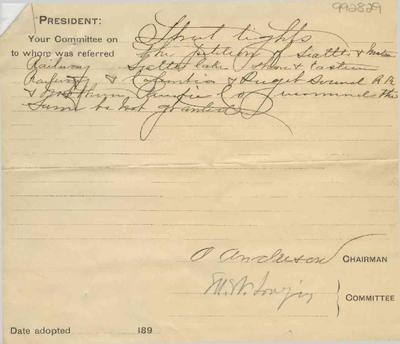 992829
PRESIDENT:
Your Committee on Street lights
to whom was referred the petition of Seattle &
Railway Seattle Lake Shore & Eastern
Railway & Columbia & Puget Sound R.R.
& Co recommends the
same be not granted
O Anderson CHAIRMAN
COMMITTEE
Date adopted 189